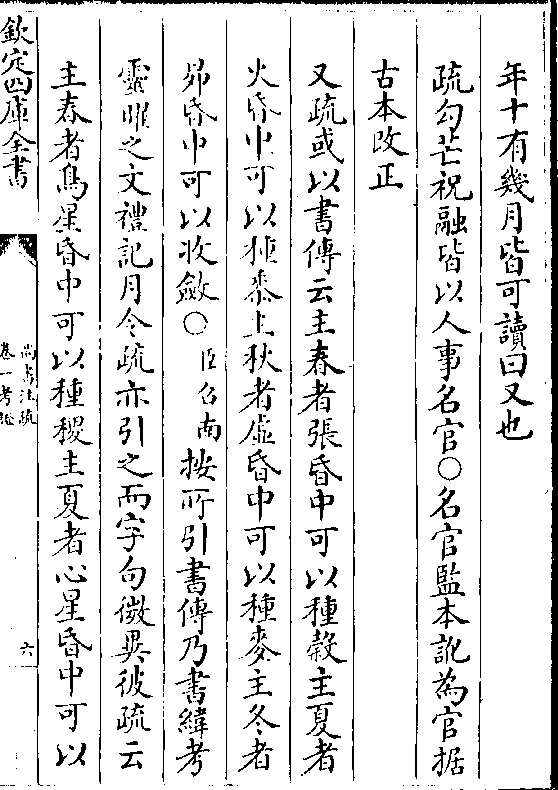 年十有幾月皆可讀曰又也
疏勾芒祝融皆以人事名官〇名官監本訛為官据
古本改正
又疏或以書傳云主春者張昏中可以種穀主夏者
火昏中可以種黍主秋者虛昏中可以種麥主冬者
昴昏中可以收斂〇臣召南按所引書傳乃書緯考
靈曜之文禮記月令疏亦引之而字句微異彼疏云
主春者鳥星昏中可以種稷主夏者心星昏中可以
欽定四庫全書
尚書注疏
卷一考證
六